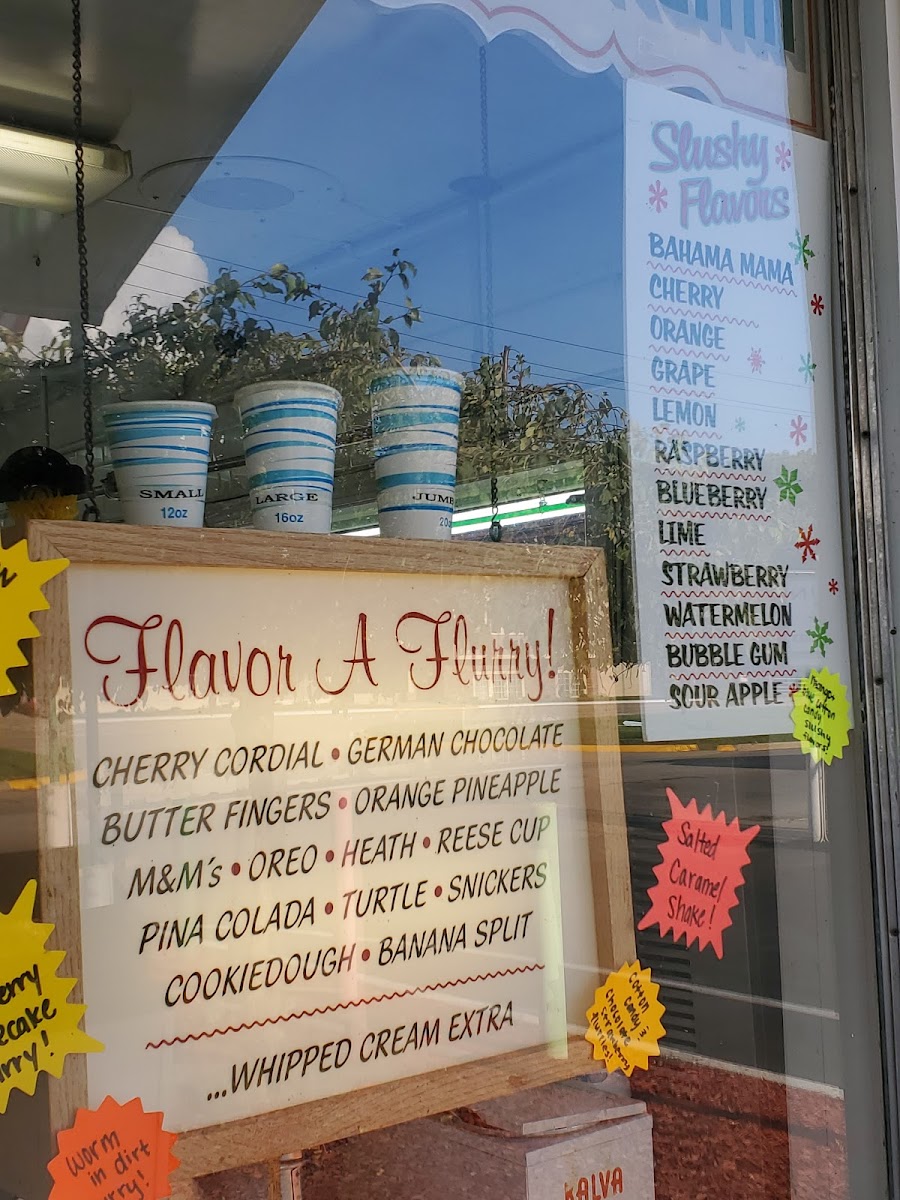 Slushy
Flavors
BAHAMA MAMA
CHERRY
ORANGE
GRAPE
LEMON
RASPBERRY
BLUEBERRY
LIME
STRAWBERRY
WATERMELON
BUBBLE GUM
SOUR APPLE
cotton
candy
slushy
flavors!
SMALL
12oz
LARGE
16oz
Flavor A Flurry!
CHERRY CORDIAL • GERMAN CHOCOLATE
BUTTER FINGERS • ORANGE PINEAPPLE
M&M's • OREO • HEATH • REESE CUP
PINA COLADA • TURTLE • SNICKERS
COOKIEDOUGH • BANANA SPLIT
...WHIPPED CREAM EXTRA
Salted
Caramel
Shake!
Cotton
Candy &
Chocolate
Strawberry
flurries!
Worm
in dirt